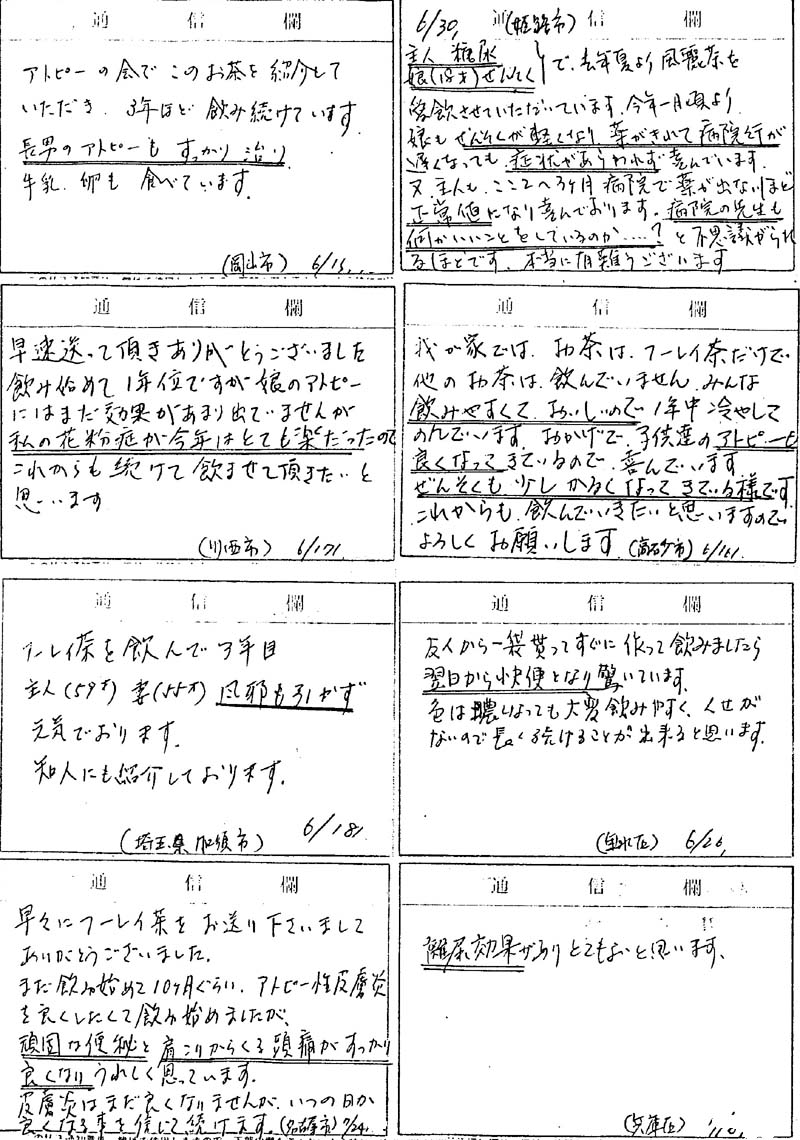 通信欄
アトピーの会でこのお茶を紹介して
いただき 3年ほど飲み続けています
長男のアトピーもすっかり治り
牛乳、卵も食べています。
(岡山市) 6/15
通信欄
6/30, (姫路市)
主人 糖尿
娘(18才)ぜんそく で、去年夏より風麗茶を
飲させていただいています。今年一月頃より
娘もぜんそくが軽くなり薬がきれて病院行が
遅くなっても、症状があらわれず喜んでいます。
又、主人も、ここ2〜3ヶ月病院で薬が出ないほど
正常値になり喜んでおります。病院の先生も
何かいいことをしているのか.....?と不思議がられ
るほどです。本当に有難うございます
通信欄
早速送って頂きありがとうございました
飲み始めて1年位ですが娘のアトピー
にはまだ効果があまり出ていませんが
私の花粉症が今年はとても楽だったので
これからも続けて飲ませて頂きたいと
思います
(川西市) 6/17
通信欄
我が家では、お茶は、フーレイ茶だけで
他のお茶は、飲んでいません。みんな
飲みやすくて、おいしいので1年中冷やして
のんでいます。おかげで、子供達のアトピーも
良くなってきているので、喜んでいます
ぜんそくも少しかるくなってきている様です
これからも、飲んでいきたいと思いますので
よろしくお願いします。(高砂市) 6/18
通信欄
フーレイ茶を飲んで3年目
主人(59才)妻(55才)風邪も引かず
元気でおります。
知人にも紹介しております。
(埼玉県加須市) 6/18
通信欄
友人から一袋貰ってすぐに作って飲みましたら
翌日から快便となり驚いています。
色は濃いよっても大変飲みやすく、くせが
ないので長く続けることが出来ると思います。
6/26
通信欄
早々にフーレイ茶をお送り下さいまして
ありがとうございました。
まだ飲み始めて10ヶ月ぐらい、アトピー性皮膚炎
を良くしたくて飲み始めましたが、
頑固な便秘と肩こりからくる頭痛がすっかり
良くなりうれしく思っています。
皮膚炎はまだ良くなりませんが、いつの日か
良くなる事を信じて続けます。(名古屋市) 7/24
通信欄
離尿効果がありとてもよいと思います、
(兵庫区)